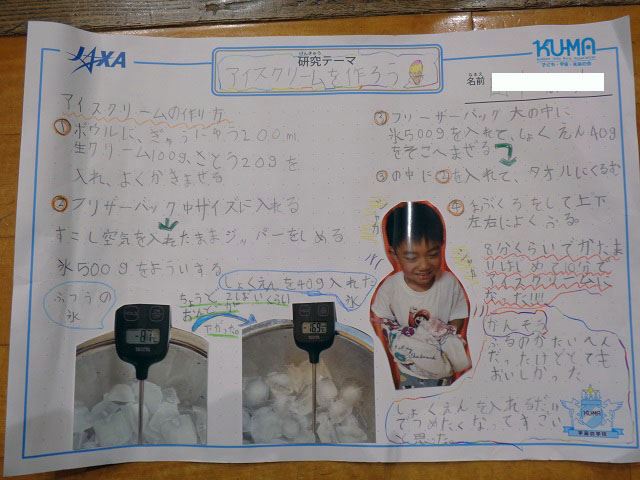 JAXA
けんきゅう
研究テーマ
アイスクリームを作ろう
KUMA
子ども・宇宙・未来の会
なまえ
名前
アイスクリームの作り方
① ボウルに、ぎゅうにゅう200ml
生クリーム100g、さとう20gを
入れ、よくかきまぜる
② フリザーバック中サイズに入れる
すこし空気を入れたままジッパーをしめる
氷500gをよういする
ふつうの
氷
-8.1
ちょうど2ばいくらい
おんどが
下がった
しょくえんを40g入れた
氷
-16.9
③ フリーザーバック大の中に
氷500gを入れて、しょくえん40g
をそこへまぜる
③の中に②を入れて、タオルにくるむ
④ 手ぶくろをして上下
左右によくふる。
8分くらいでかたま
りはじめて10分で
アイスクリームに
なった!!!
かんそう
ふるのがたいへん
だったけどとても
おいしかった
しょくえんを入れるだけ
でつめたくなってすごい
と思った。
KUMA
宇宙の学校